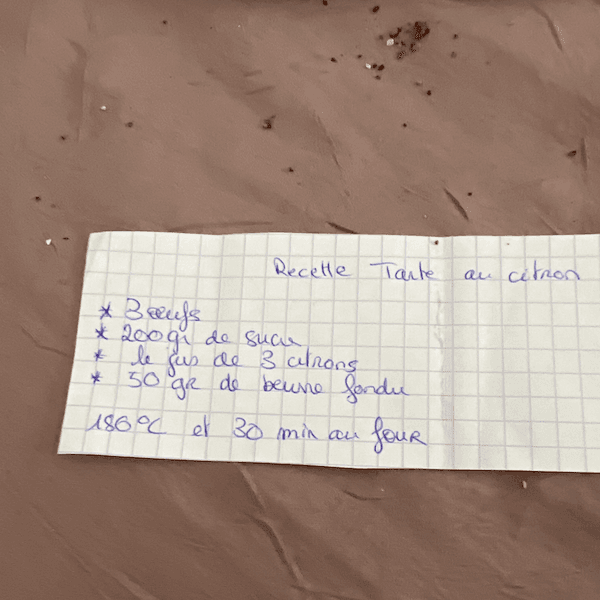 Recette Tarte au citron
* 3 œufs
* 200gr de sucre
* le jus de 3 citrons
* 50 gr de beurre fondu
180°C et 30 min au four